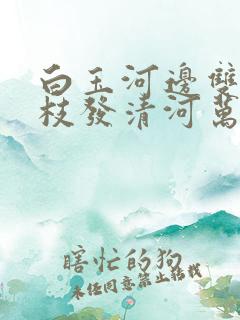 白玉河邊雙
枝發清河萬
瞎忙的狗
未经同意禁止转载